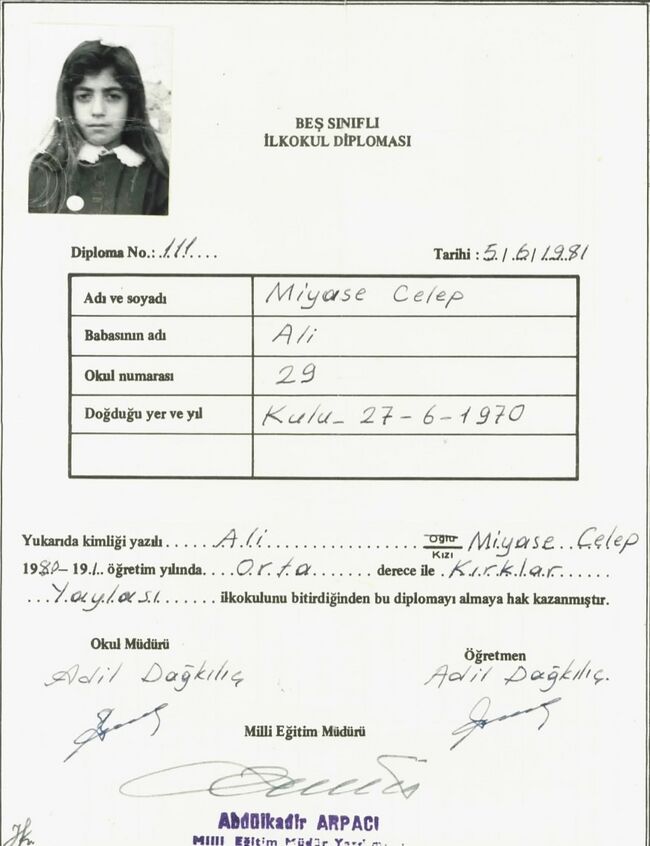 BEŞ SINIFLI
İLKOKUL DİPLOMASI
Diploma No.: 111.... Tarihi : 5/6/1981
Adı ve soyadı Miyase Celep
Babasının adı Ali
Okul numarası 29
Doğduğu yer ve yıl Kulu- 27-6-1970
Yukarıda kimliği yazılı ...... Ali ...................... Oğlu Kızı Miyase Celep
1980-19.1.. öğretim yılında.... Orta ....... derece ile . Kırklar ......
... Yaylası ...... ilkokulunu bitirdiğinden bu diplomayı almaya hak kazanmıştır.
Okul Müdürü Öğretmen
Adil Dağkılıç Adil Dağkılıç.
Milli Eğitim Müdürü
Abdülkadir ARPACI
Milli Eğitim Müdür